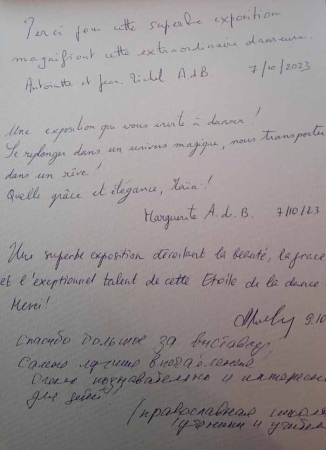 Merci pour cette superbe exposition
magnifiant cette extraordinaire danseuse.
Antoinette et Jean Michel A.d.B 7/10/2023
Une exposition qui vous invite à danser !
Se replonger dans un univers magique, nous transporter
dans un rêve !
Quelle grâce et élégance, Maïa !
Marguerite A.d.B. 7/10/23
Une superbe exposition décrivant la beauté, la grace
et l'exceptionnel talent de cette Etoile de la danse
Merci!
9.10
Спасибо большое за виставку
Самые лучшие впечатления!
Очень познавательно и интересно
для детей!
/православная школа
ученики и учителя